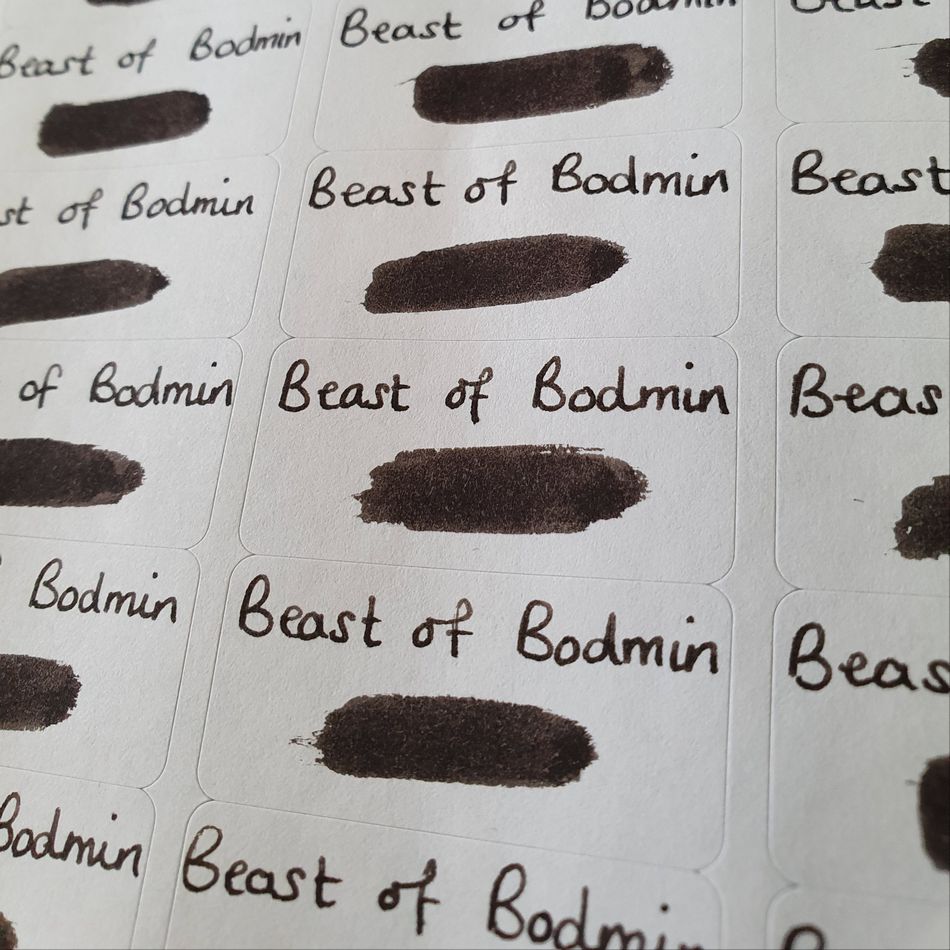 Beast of Bodmin
Beast of Bodmin
Beast
st of Bodmin
Beast of Bodmin
Beast
of Bodmin
Beast of Bodmin
Beas
Bodmin
Beast of Bodmin
Beas
Bodmin
Beast of Bodmin